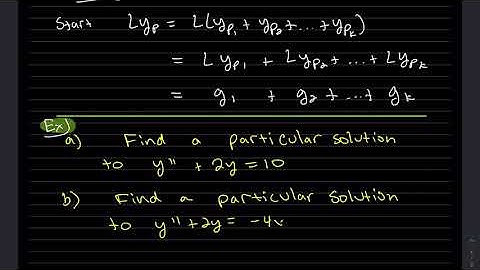 Start Lyp = L(yp₁ + yp₂ + ... + ypₖ)
= Lyp₁ + Lyp₂ + ... + Lypₖ
= g₁ + g₂ + ... + gₖ
Ex)
a) Find a particular solution
to y" + 2y = 10
b) Find a particular solution
to y" + 2y = -4x